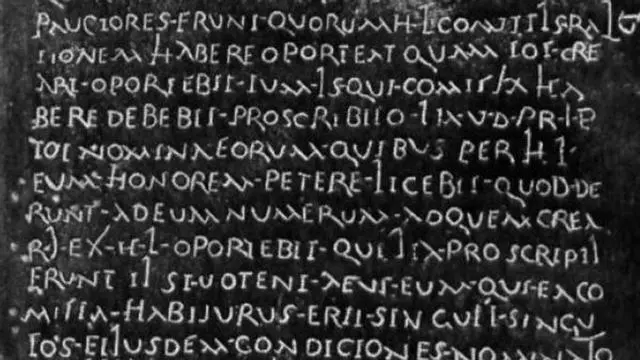 PAUCIORES·ERUNT·QUORUM·H·L·COMITIIS RATIO
TIONEM HABERE OPORTEAT QUAM TOT·CRE
ARI·OPORTEBIT·TUM·IS QUI·COMITIA HA
BERE DEBEBIT·PROSCRIBITO·ITA·V·D·P·R·L·P
TOT NOMINA EORUM·QUIBUS PER H·L·
EUM·HONOREM·PETERE·LICEBIT·QUOD·DE
RUNT·AD EUM NUMERUM·AD QUEM CREA
RI·EX·H·L·OPORTEBIT·QUI ITA PROSCRIPTI
ERUNT II SI·UOLENT·APUT·EUM·QUI·EA CO
MITIA·HABITURUS·ERIT·SINGULI·SINGU
LOS·EIUSDEM·CONDICIONES·NOMINATO